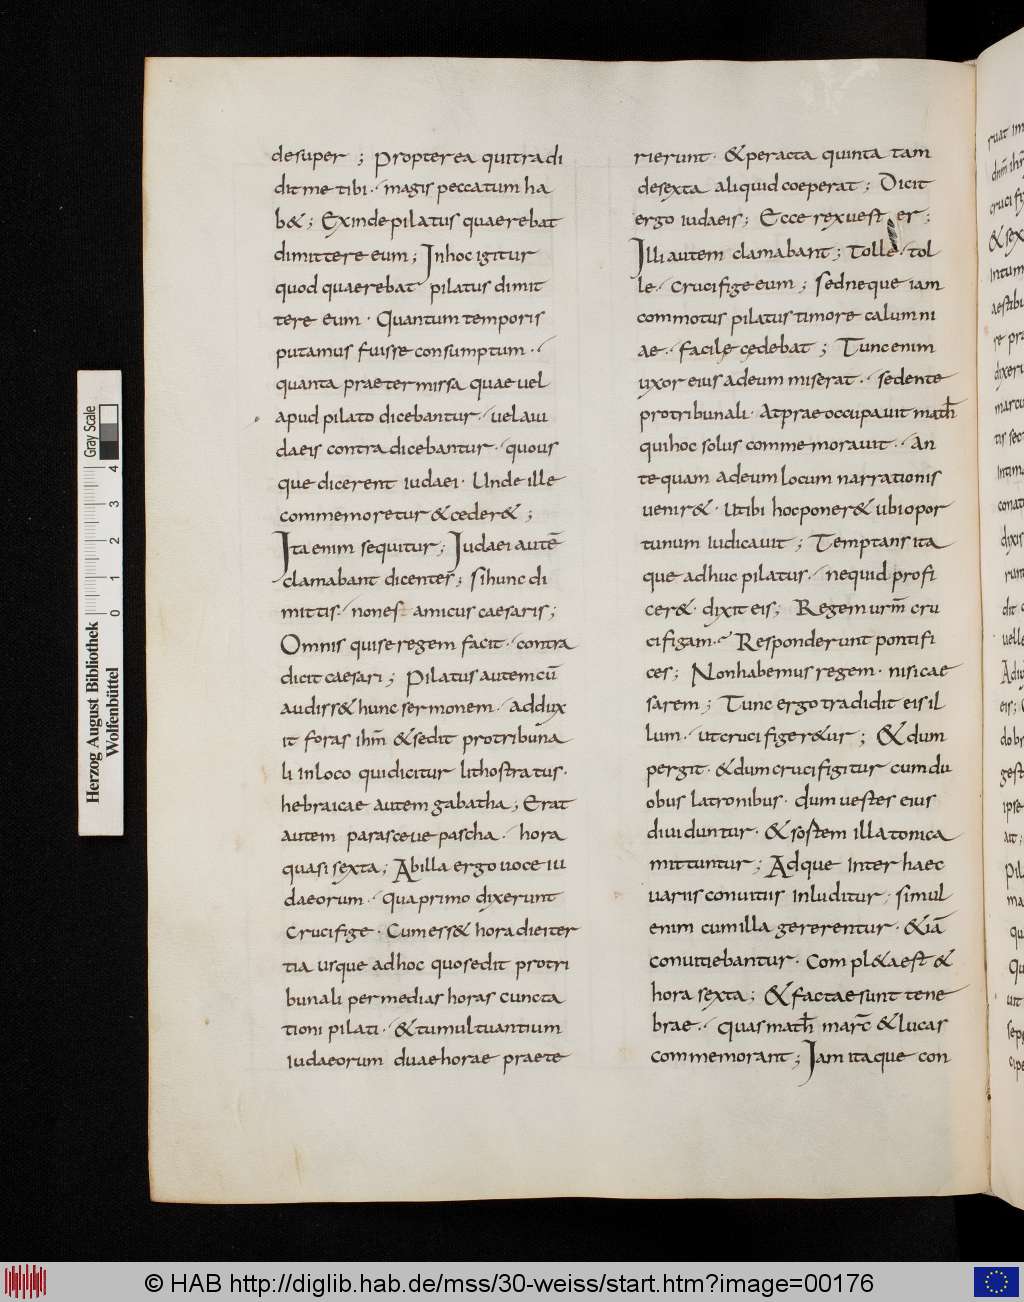 desuper ; Propterea quitradi
ditme tibi · magis peccatum ha
b& ; Exinde pilatus quaerebat
dimittere eum ; Inhoc igitur
quod quaerebat pilatus dimit
tere eum · Quantum temporis
putamus fuisse consumptum ·
quanta praetermissa quae uel
apud pilato dicebantur · uel aiu
daeis contradicebantur · quous
que dicerent iudaei · Unde ille
commemoretur & ceder& ;
Ita enim sequitur ; Iudaei autē
clamabant dicentes ; si hunc di
mittis · non es amicus caesaris ;
Omnis qui se regem facit · contra
dicit caesari ; Pilatus autem cū
audiss& hunc sermonem · addux
it foras ihm̄ & sedit pro tribuna
li in loco qui dicitur lithostratus ·
hebraicae autem gabatha ; Erat
autem parasceue pascha · hora
quasi sexta ; Ab illa ergo uoce iu
daeorum · qua primo dixerunt
crucifige · Cum ess& hora diei ter
tia usque adhoc quo sedit pro tri
bunali per medias horas cuncta
tioni pilati · & tumultuantium
iudaeorum duae horae praete
rierunt · & peracta quinta tam
de sexta aliquid coeperat ; Dicit
ergo iudaeis ; Ecce rex uester ;
Illi autem clamabant ; Tolle · tol
le · Crucifige eum ; Sed neque iam
commotus pilatus timore calumni
ae · facile cedebat ; Tunc enim
uxor eius ad eum miserat · sedente
pro tribunali · At praeoccupauit math̄
qui hoc solus commemorauit · An
tequam ad eum locum narrationis
uenir& · Ut ibi hoc poner& ubi opor
tunum iudicauit ; Temptans ita
que adhuc pilatus · ne quid profi
cer& · dixit eis ; Regem urm̄ cru
cifigam · Responderunt pontifi
ces ; Non habemus regem · nisi cae
sarem ; Tunc ergo tradidit eis il
lum · ut crucifiger&ur ; & dum
pergit · & dum crucifigitur cum du
obus latronibus · dum uestes eius
diuiduntur · & sostem illa tonica
mittuntur ; Adque inter haec
uariis conuitiis inluditur · simul
enim cum illa gererentur · & iā
conuitiebantur · Compl&a est &
hora sexta ; & factae sunt tene
brae · quas math̄ marc̄ & lucas
commemorant ; Iam itaque con
Herzog August Bibliothek
Wolfenbüttel
Gray Scale
0 1 2 3 4
© HAB http://diglib.hab.de/mss/30-weiss/start.htm?image=00176